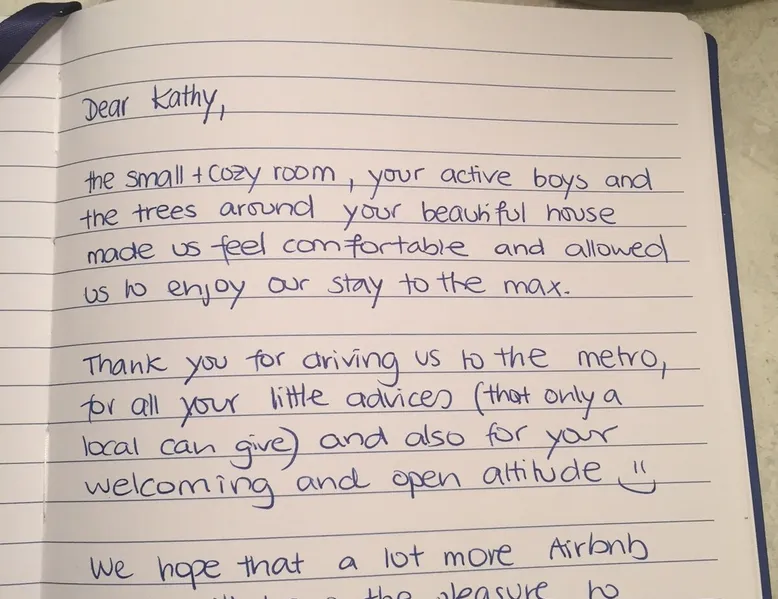 Dear Kathy,
the small + cozy room, your active boys and
the trees around your beautiful house
made us feel comfortable and allowed
us to enjoy our stay to the max.
Thank you for driving us to the metro,
for all your little advices (that only a
local can give) and also for your
welcoming and open attitude
We hope that a lot more Airbnb
the pleasure to